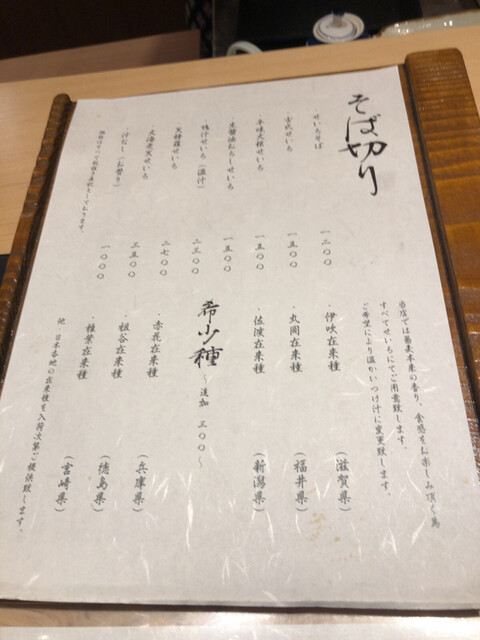 そば切り
・せいろそば 一二〇〇
古式せいろ 一五〇〇
辛味大根せいろ 一五〇〇
生醤油おろしせいろ 一五〇〇
鴨汁せいろ（温汁） 二三〇〇
天麩羅せいろ 二七〇〇
大海老天せいろ 三五〇〇
汁なし（お替り） 一〇〇〇
価格はすべて税抜き表記としております。
当店では蕎麦本来の香り、食感をお楽しみ頂く為
すべてせいろにてご用意致します。
ご希望により温かいつけ汁に変更致します。
・伊吹在来種 （滋賀県）
・丸岡在来種 （福井県）
・佐渡在来種 （新潟県）
希少種 〜追加 三〇〇〜
・赤花在来種 （兵庫県）
・祖谷在来種 （徳島県）
・椎葉在来種 （宮崎県）
他、日本各地の在来種を入荷次第ご提供致します。